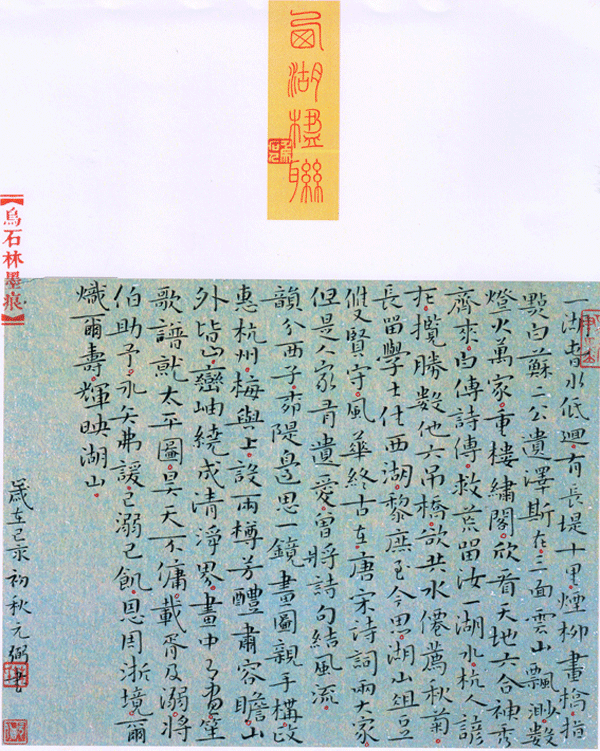 西湖楹聯
【烏石林墨痕】
一湖春水低迴有長堤十里煙柳畫橋指
點白蘇二公遺澤斯在三面雲山飄渺數
燈火萬家重樓繡閣欣看天地六合神秀
齊來白傅詩傳救荒留汝一湖水杭人諺
在攬勝數他六吊橋欲共水僊薦秋菊
長留學士住西湖黎庶至今思湖山俎豆
雙賢守風華終古在唐宋詩詞兩大家
但是人家有遺愛曾將詩句結風流
韻分西子隄邊思一鏡畫圖親手構政
惠杭州梅與上設兩樽芳醴肅容瞻山
外皆山巒岫繞成清淨界畫中有畫笙
歌譜就太平圖昊天不傭載胥及溺將
伯助予永矢弗諼己溺己飢恩周浙境爾
熾爾壽輝映湖山
歲在己未初秋元弼書